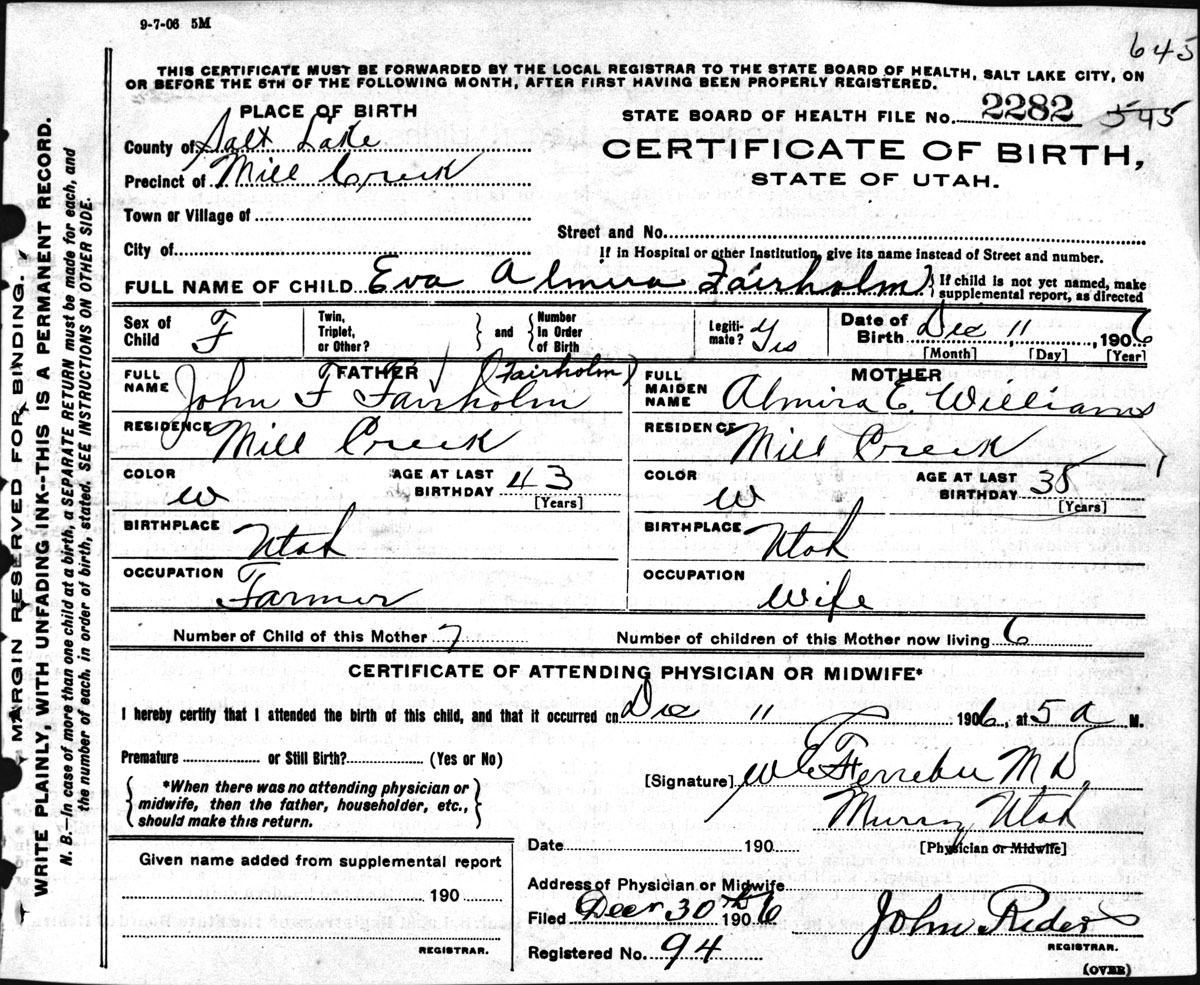 9-7-06 5M
645
THIS CERTIFICATE MUST BE FORWARDED BY THE LOCAL REGISTRAR TO THE STATE BOARD OF HEALTH, SALT LAKE CITY, ON
OR BEFORE THE 5TH OF THE FOLLOWING MONTH, AFTER FIRST HAVING BEEN PROPERLY REGISTERED.
PLACE OF BIRTH
STATE BOARD OF HEALTH FILE NO. 2282 545
County of Salt Lake
CERTIFICATE OF BIRTH,
Precinct of Mill Creek
STATE OF UTAH.
Town or Village of
Street and No.
City of
If in Hospital or other Institution, give its name instead of Street and number.
FULL NAME OF CHILD Eva Almira Fairholm } If child is not yet named, make
supplemental report, as directed
Sex of Child F
Twin, Triplet, or Other? } and { Number in Order of Birth
Legiti-mate? Yes
Date of Birth Dec 11, 1906
[Month] [Day] [Year]
FATHER
FULL NAME John F Fairholm (Fairholm)
RESIDENCE Mill Creek
COLOR W
AGE AT LAST BIRTHDAY 43
[Years]
BIRTHPLACE Utah
OCCUPATION Farmer
MOTHER
FULL MAIDEN NAME Almira E. Williams
RESIDENCE Mill Creek
COLOR W
AGE AT LAST BIRTHDAY 38
[Years]
BIRTHPLACE Utah
OCCUPATION Wife
Number of Child of this Mother 7 Number of children of this Mother now living 6
CERTIFICATE OF ATTENDING PHYSICIAN OR MIDWIFE*
I hereby certify that I attended the birth of this child, and that it occurred on Dec 11 1906, at 5 a M.
Premature or Still Birth? (Yes or No)
*When there was no attending physician or
midwife, then the father, householder, etc.,
should make this return.
[Signature] W C Ferrebee M D.
Murray Utah
Date 190 [Physician or Midwife]
Given name added from supplemental report
190
REGISTRAR.
Address of Physician or Midwife
Filed Decr 30th 1906 John Rider
REGISTRAR.
Registered No. 94
(OVER)
MARGIN RESERVED FOR BINDING.
WRITE PLAINLY, WITH UNFADING INK—THIS IS A PERMANENT RECORD.
N. B.—In case of more than one child at a birth, a SEPARATE RETURN must be made for each, and
the number of each, in order of birth, stated. SEE INSTRUCTIONS ON OTHER SIDE.